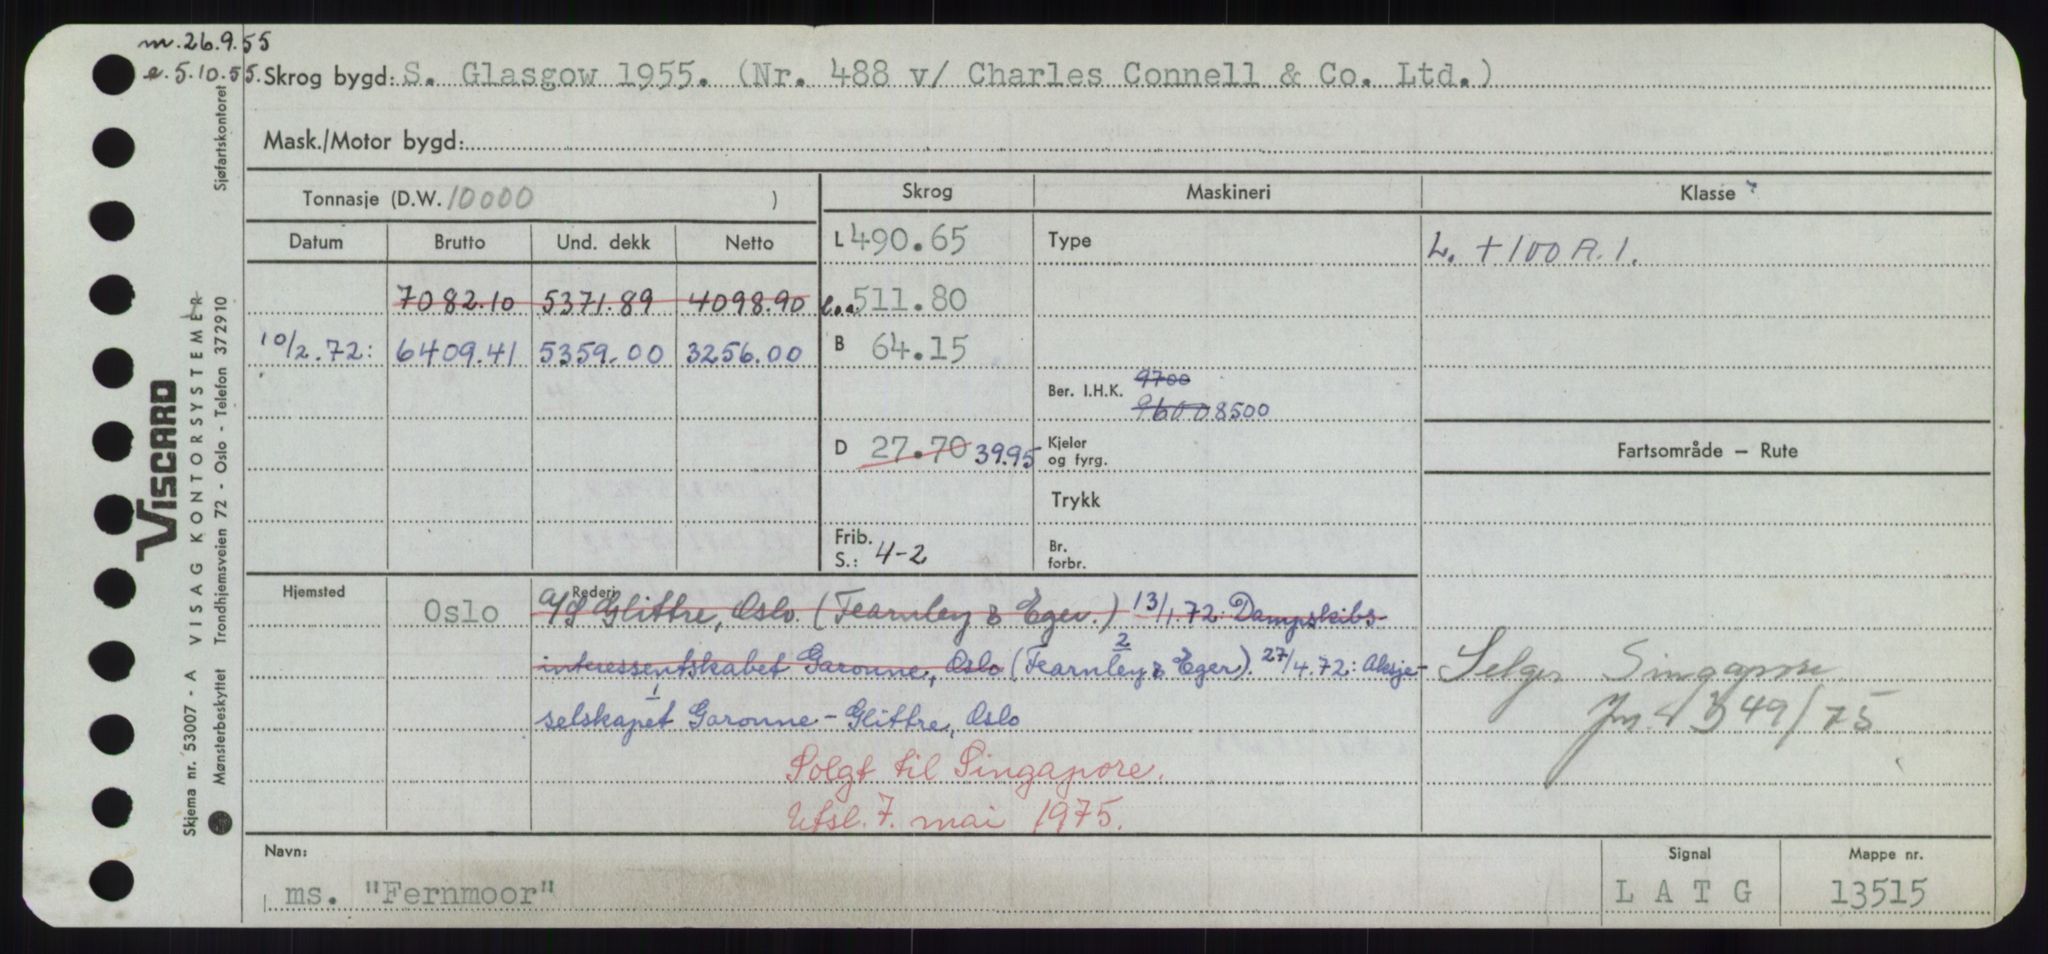 m. 26.9.55
e. 5.10.55. Skrog bygd: S. Glasgow 1955. (Nr. 488 v/ Charles Connell & Co. Ltd.)
Mask./Motor bygd:
Tonnasje (D.W. 10000 )
Skrog Maskineri Klasse
Datum Brutto Und. dekk Netto
L 490.65 Type L. + 100 A. 1.
7082.10 5371.89 4098.90 l.o.a. 511.80
10/2.72: 6409.41 5359.00 3256.00 B 64.15
Ber. I.H.K. 9700
9600 8500
D 27.70 39.95 Kjeler og fyrg. Fartsområde – Rute
Trykk
Frib. S.: 4-2 Br. forbr.
Hjemsted Rederi
Oslo A/S Glittre, Oslo. (Fearnley & Eger.) 13/1.72: Dampskibs
interessentskabet Garonne, Oslo (Fearnley & Eger). 27/4.72: Aksje-
2
1
selskapet Garonne - Glittre, Oslo
Selges Singapore
Jnr. 4349/75
Solgt til Singapore.
Utsl. 7. mai 1975.
Navn: Signal Mappe nr.
ms. "Fernmoor" L A T G 13515
VISCARD
Skjema nr. 53007 - A VISAG KONTORSYSTEMER
Mønsterbeskyttet Trondhjemsveien 72 - Oslo - Telefon 372910
Sjøfartskontoret